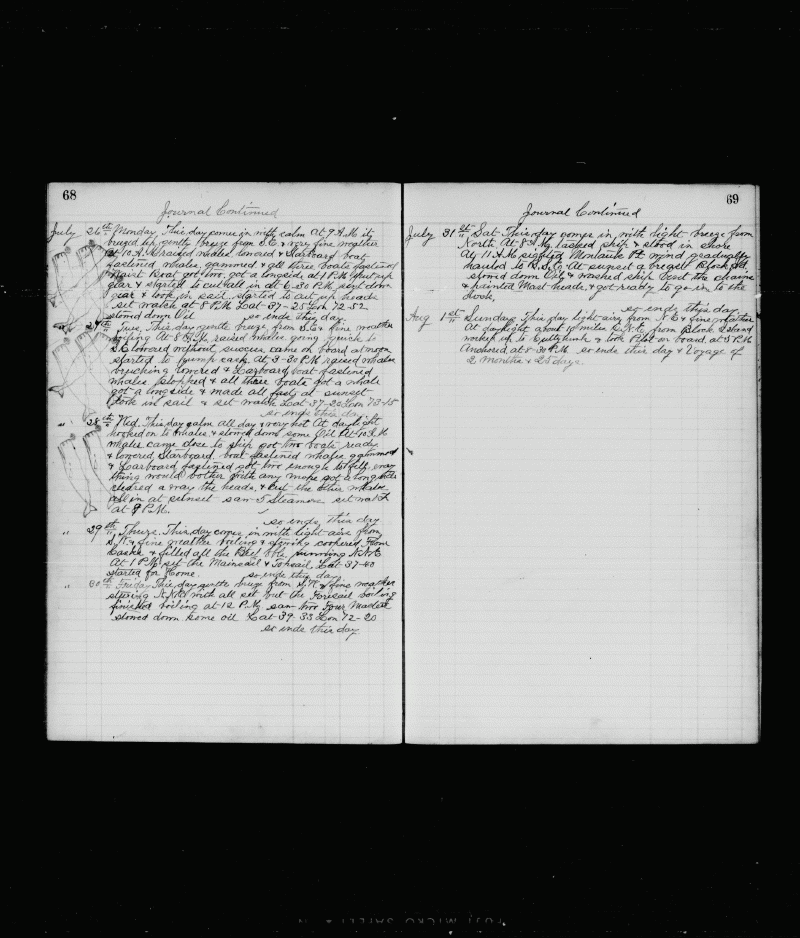 68
Journal Continued
July 26th Monday This day comes in with calm At 9 A.M. it
breezed up gently breeze from S.E. & very fine weather
At 10 A.M. raised whales lowered & Starboard boat
fastened whales gammed & all three boats fastened
Waist Boat got two got a longside at 1 P.M. put up
gear & started to cut all in at 6-30 P.M. sent down
gear & took in sail started to cut up heads
set watch at 8 P.M. Lat 37-25 Lon 72-52
stowed down Oil so ends this day.
27th Tues. This day gentle breeze from S.E. & fine weather
boiling At 8 A.M. raised whales going quick to
lowered without success came on board at noon
started to pump cask At 3-30 P.M. raised whales
lowered & Larboard boat fastened
whales stopped & all three boats got a whale
got a longside & made all fast at sunset
took in sail & set watch Lat 37-20 Lon 73-15
so ends this day
" 28th Wed. This day calm all day & very hot At daylight
hooked on to whales & stowed down some Oil At 10 A.M.
whales came close to ship got two boats ready
& lowered Starboard boat fastened whales gammed
& Larboard fastened got two enough to fill every
thing would bother with any more got a longside
cleared a way the heads & cut the other whales
all in at sunset saw 5 Steamers set watch
at 9 P.M.
so ends this day
" 29th Thurs. This day comes in with light airs from
S.W. & fine weather boiling &
Casks & filled all the running N.N.E.
At 1 P.M. set the Mainsail & Topsail Lat 37-40
started for Home. so ends this day
" 30th Friday This day gentle breeze from S.W. & fine weather
stering N.N.E. with all set but the Foresail boiling
finished boiling at 12 P.M. saw two Four Masters
stowed down some oil Lat 39-33 Lon 72-20
so ends this day
69
Journal Continued
July 31st Sat. This day comes in with light breeze from
North At 8 A.M. washed ship & stood in shore
At 11 A.M. sighted Montauk Pt wind gradually
hauled to S.S.E. At sunset a breast Block Ild
stowed down Oil & washed ship bent the chains
& painted Mast heads & got ready to go in to the
dock,
so ends this day
Aug 1st Sunday This day light airs from N.E. & fine weather
At daylight about 10 miles S.N.E. from Block Island
worked up to Cuttyhunk & took Pilot on board at 5 P.M.
Anchored at 8-30 P.M. so ends this day & Voyage of
2 months & 25 days.